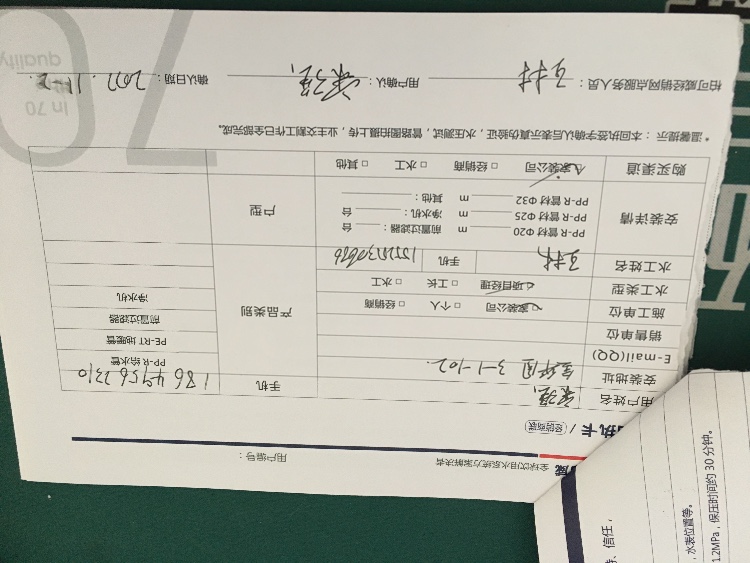 威 全球饮用水系统方案解决者 用户编号：
执卡 / 经销商联
用户姓名 手机 186 4956 2310
安装地址 3-1-102. PP-R 给水管
E-mail(QQ) PE-RT 地暖管
销售单位 前置过滤器
施工单位 □ 家装公司 □ 个人 □ 经销商 产品类别 净水机
水工类型 □ 项目经理 □ 工长 □ 水工
水工姓名 王林 手机
安装详情 PP-R 管材 Φ20 m 前置过滤器： 台 户型
PP-R 管材 Φ25 m 净水机： 台
PP-R 管材 Φ32 m 其他：
购买渠道 □ 家装公司 □ 经销商 □ 水工 □ 其他
* 温馨提示：本回执签字确认后表示真伪验证，水压测试，管路图拍摄上传，业主交割工作已全部完成。
柏可威经销网点服务人员： 王林 用户确认： 确认日期：
In 70
quality
、信任，
，水表位置等。
1.2MPa，保压时间约 30 分钟。